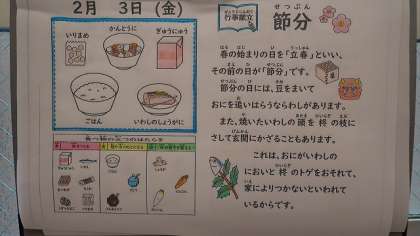 2月 3日(金)
いりまめ
かんとうに
ぎゅうにゅう
ごはん
いわしのしょうがに
行事献立
せつぶん
節分
春の始まりの日を「立春」といい、
その前の日が「節分」です。
節分の日には、豆をまいて
おにを追いはらうならわしがあります。
また、焼いたいわしの頭を柊の枝に
さして玄関にかざることもあります。
これは、おにがいわしの
においと柊のトゲをおそれて、
家によりつかないといわれて
いるからです。